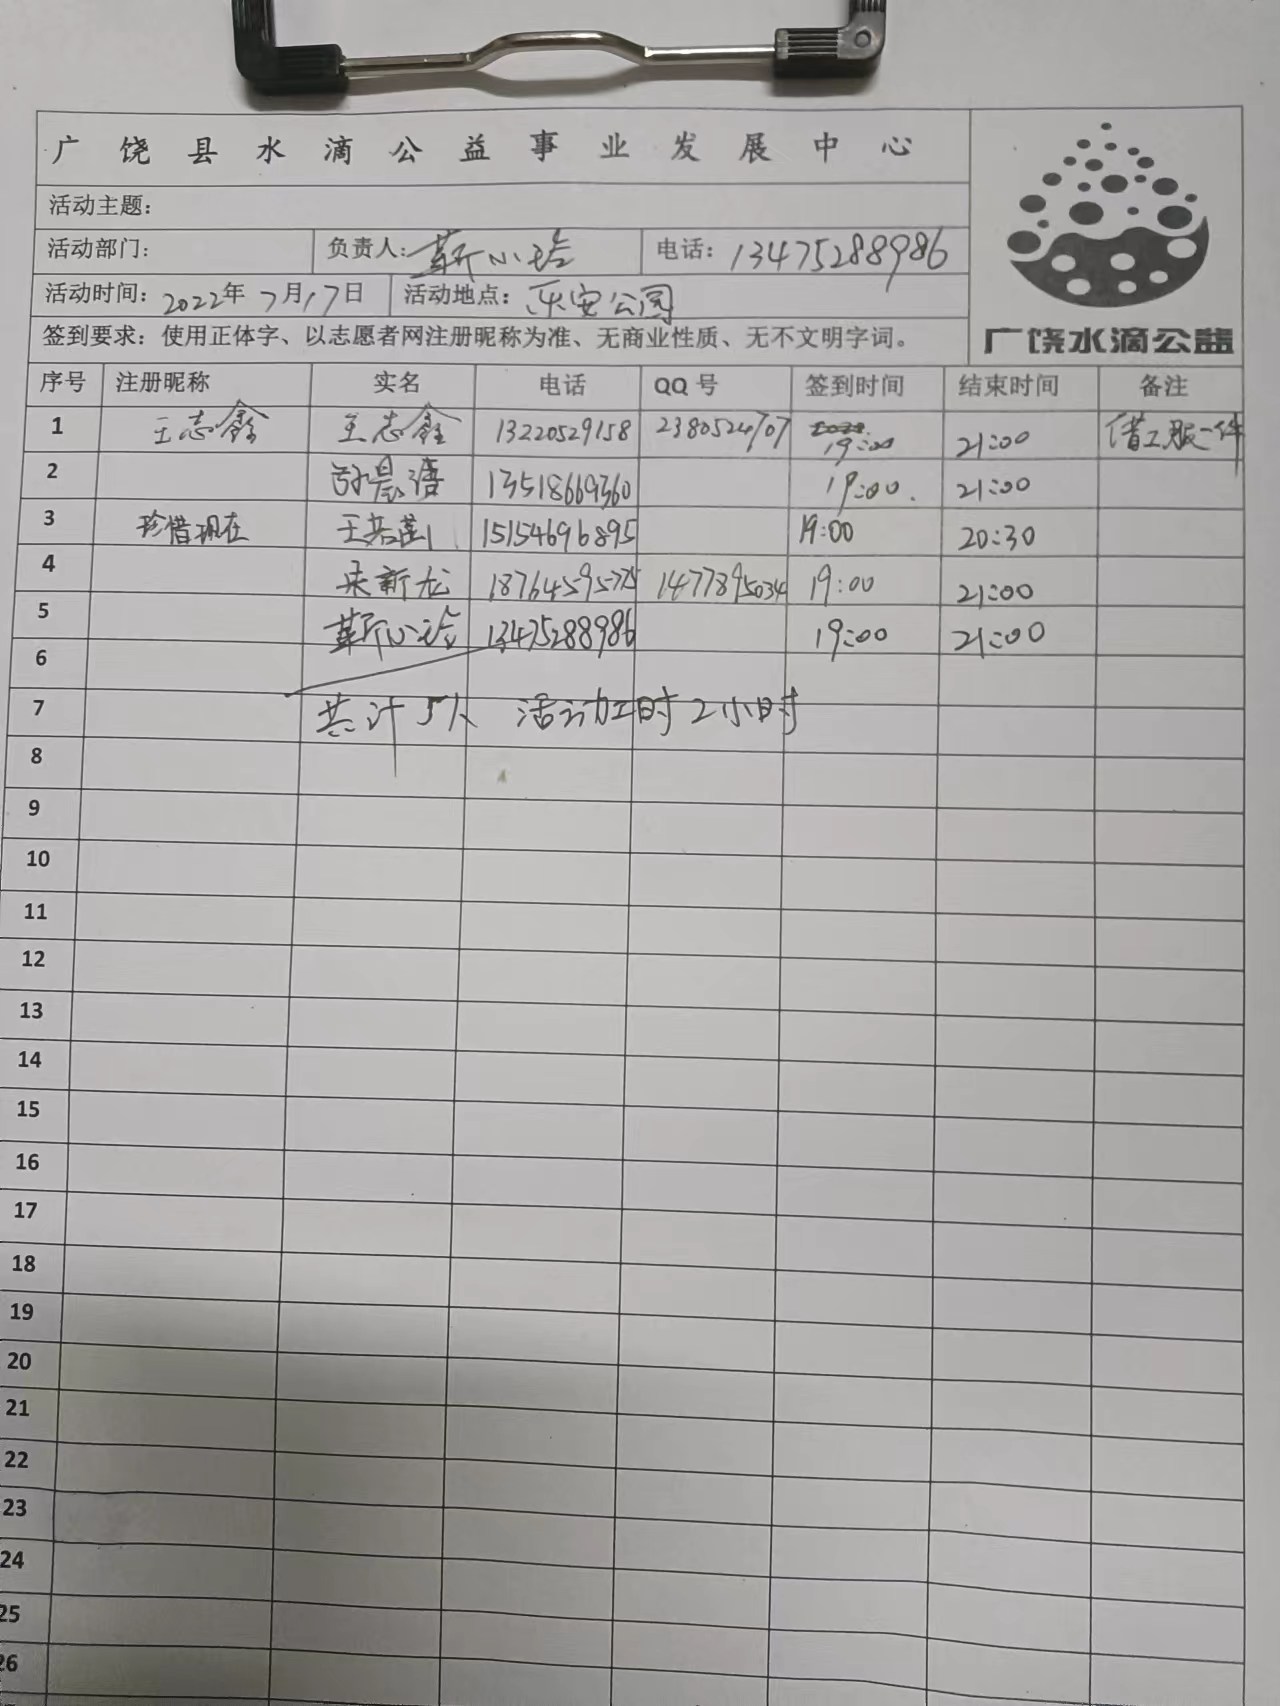 广饶县水滴公益事业发展中心
活动主题：
活动部门： 负责人：靳小玲 电话：13475288986
活动时间：2022年7月17日 活动地点：乐安公园
签到要求：使用正体字、以志愿者网注册昵称为准、无商业性质、无不文明字词。
广饶水滴公益
序号 注册昵称 实名 电话 QQ号 签到时间 结束时间 备注
1 王志鑫 王志鑫 13220529158 2380524707 19:00 21:00 借工服一件
2 13518669360 19:00. 21:00
3 珍惜现在 15154696895 19:00 20:30
4 宋新龙 18764595775 1477895034 19:00 21:00
5 靳小玲 13475288986 19:00 21:00
6
7 共计5人 活动工时2小时
8
9
10
11
12
13
14
15
16
17
18
19
20
21
22
23
24
25
26